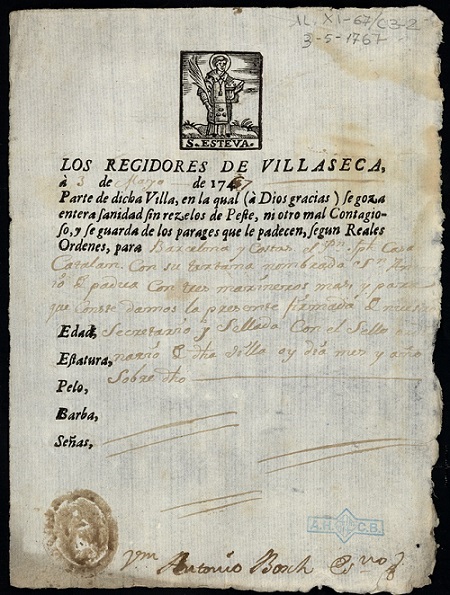 AL. XI-67/C3-2
3-5-1767
S. ESTEVA.
LOS REGIDORES DE VILLASECA,
à 3 de Mayo de 1767
Parte de dicha Villa, en la qual (à Dios gracias) se goza
entera sanidad sin rezelos de Peste, ni otro mal Contagio-
so, y se guarda de los parages que le padecen, segun Reales
Ordenes, para Barcelona y Costas el Pn. Sph. Casa
Catalan. Con su tartana nombrada Sn. An
Padua Con tres marineros mas, y para
que Conste damos la presente firmada
Edad, Secretario y Sellada Con el Sello
Estatura, dha villa oy dia mes y año
Pelo, Sobre dho
Barba,
Señas,
A.H. C.B.
Antonio Bosch Esno